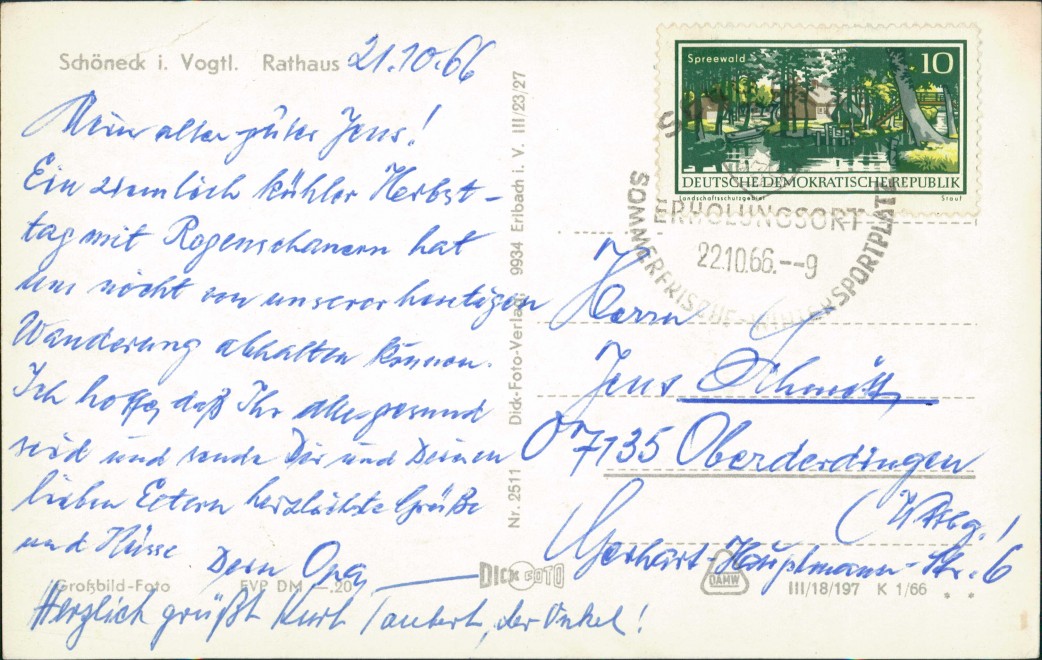 Schöneck i. Vogtl. Rathaus 21.10.66
Mein alter guter Jens!
Ein ziemlich kühler Herbst-
tag mit Regenschauern hat
uns nicht von unserer heutigen
Wanderung abhalten können.
Ich hoffe, daß Ihr alle gesund
seid und sende Dir und Deinen
lieben Eltern herzlichste Grüße
und Küsse
Dein Opa
Großbild-Foto EVP DM -.20
Herzlich grüßt Kurt Taubert, der Onkel!
Nr. 2511 Dick-Foto-Verlag, 9934 Erlbach i. V. III/23/27
DICK FOTO
Spreewald
10
DEUTSCHE DEMOKRATISCHE REPUBLIK
Landschaftsschutzgebiet Stauf
ERHOLUNGSORT
22.10.66.--9
SOMMERFRISCHE-WINTERSPORTPLATZ
Herrn
Jens Schmitt
7135 Oberderdingen
(Wttbg.)
Gerhart-Hauptmann-Str. 6
DAMW
III/18/197 K 1/66